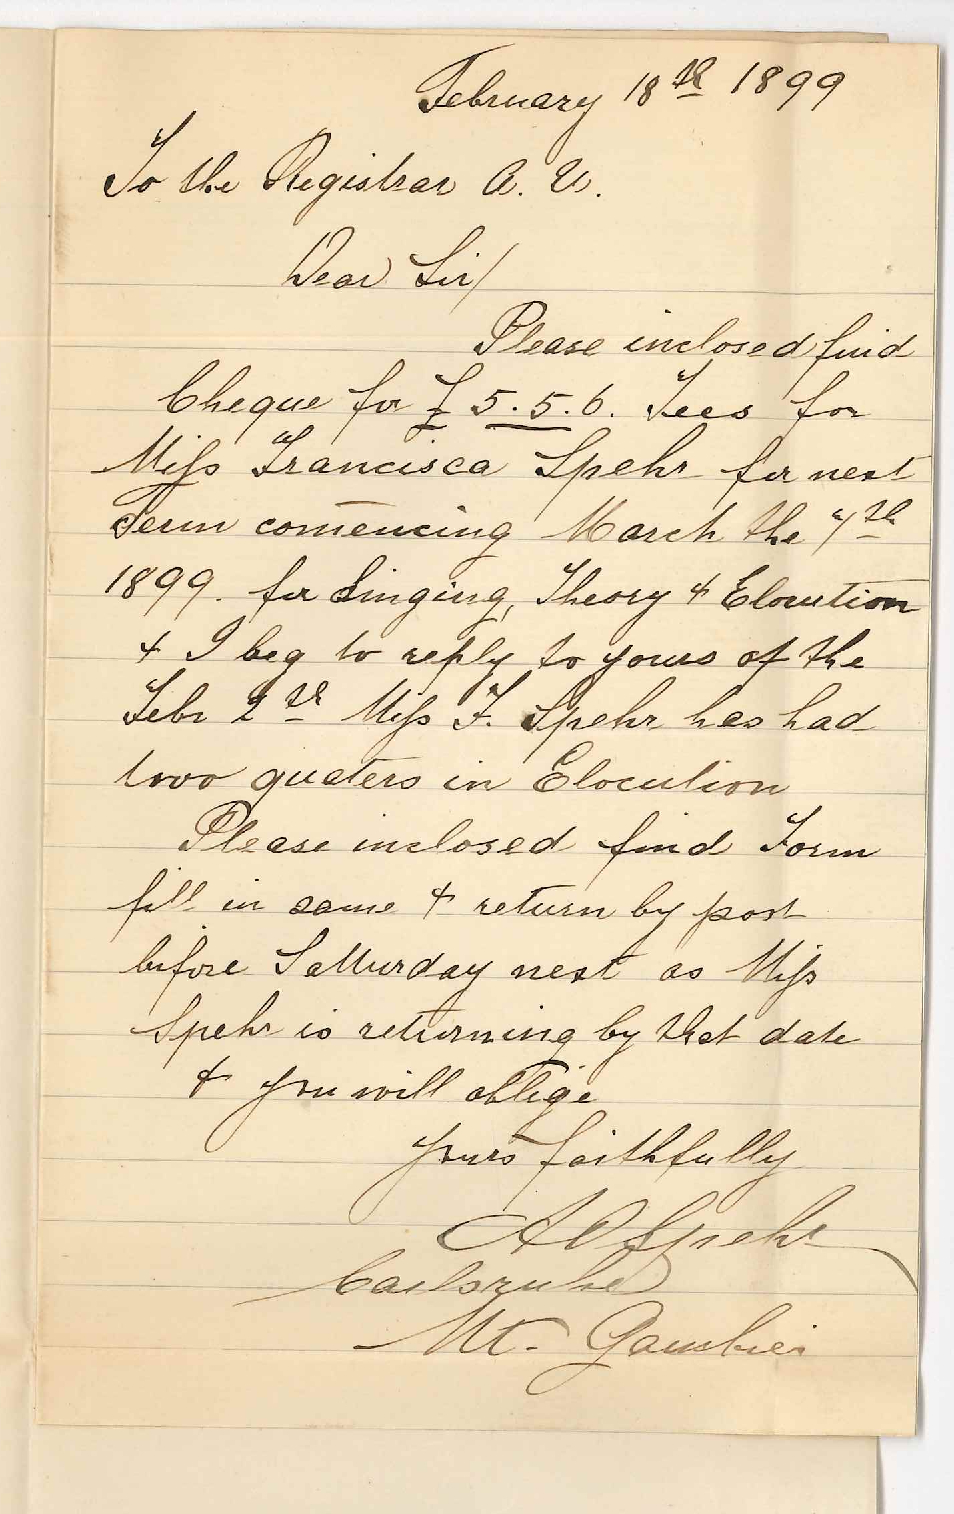 February 18th 1899
To the Registrar A. U.
Dear Sir/
Please inclosed find
Cheque for £ 5.5.6. Fees for
Miss Francisca Spehr for next
Term comencing March the 7th
1899. for Singing, Theory & Elocution
& I beg to reply to yours of the
Febr 2th Miss F. Spehr has had
two quaters in Elocution
Please inclosed find Form
fill in same & return by post
before Satturday next as Miss
Spehr is returning by that date
& you will oblige
Yours faithfully
A O Spehr
Carlsruhe
Mt. Gambier